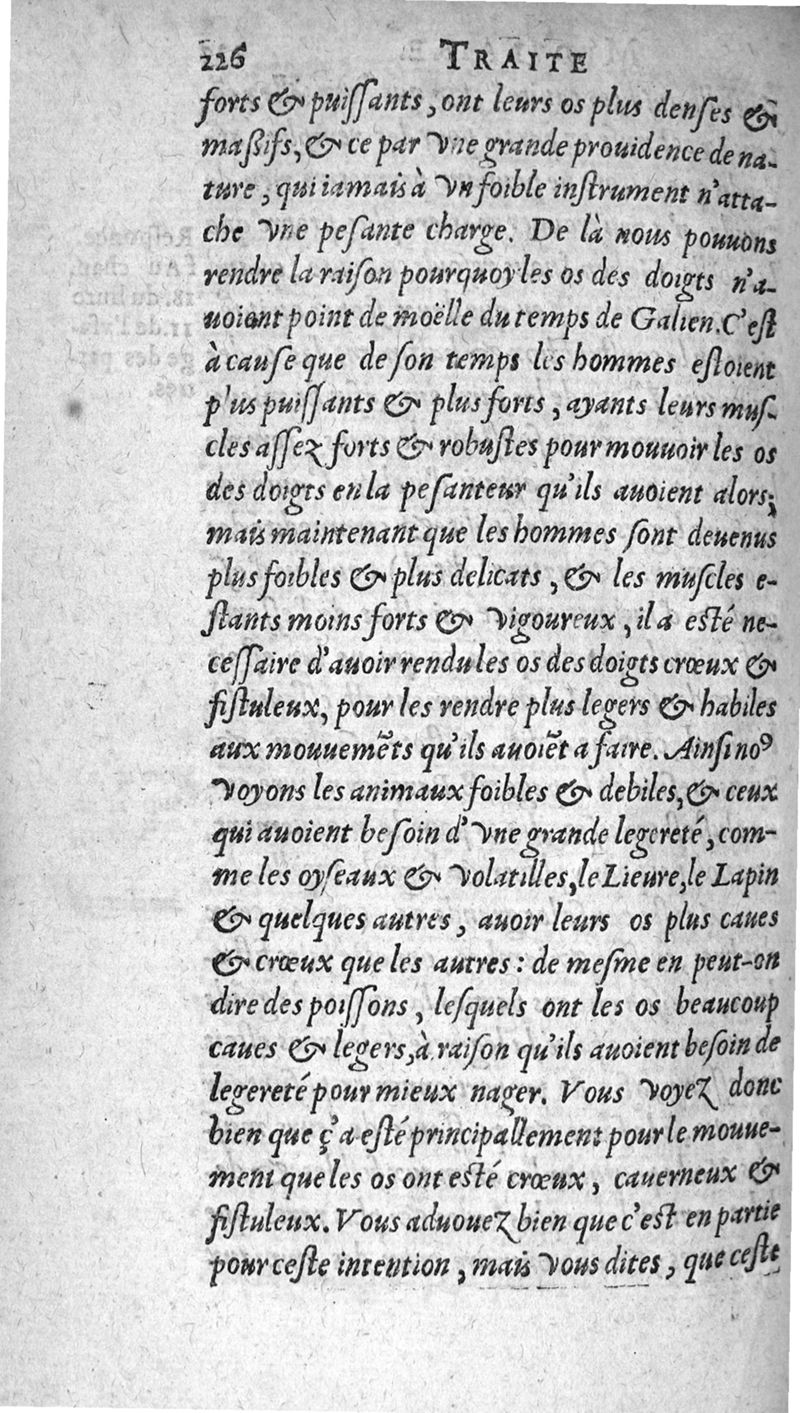 226 TRAITE
forts & puiſſants, ont leurs os plus denſes &
maßifs, & ce par vne grande prouidence de na-
ture, qui iamais à vn foible inſtrument n'atta-
che vne peſante charge. De là nous pouuons
rendre la raiſon pourquoy les os des doigts n'a-
uoient point de moëlle du temps de Galien. C'eſt
à cauſe que de ſon temps les hommes eſtoient
plus puiſſants & plus forts, ayants leurs muſ-
cles aſſez forts & robuſtes pour mouuoir les os
des doigts en la peſanteur qu'ils auoient alors;
mais maintenant que les hommes ſont deuenus
plus foibles & plus delicats, & les muſcles e-
ſtants moins forts & vigoureux, il a eſté ne-
ceſſaire d'auoir rendu les os des doigts crœux &
fiſtuleux, pour les rendre plus legers & habiles
aux mouuemẽts qu'ils auoiẽt a faire. Ainſi noꝰ
voyons les animaux foibles & debiles, & ceux
qui auoient beſoin d'vne grande legereté, com-
me les oyſeaux & volatilles, le Lieure, le Lapin
& quelques autres, auoir leurs os plus caues
& crœux que les autres: de meſme en peut-on
dire des poiſſons, leſquels ont les os beaucoup
caues & legers, à raiſon qu'ils auoient beſoin de
legereté pour mieux nager. Vous voyez donc
bien que ç'a eſté principallement pour le mouue-
ment que les os ont eſté crœux, cauerneux &
fiſtuleux. Vous aduouez bien que c'eſt en partie
pour ceſte intention, mais vous dites, que ceſte